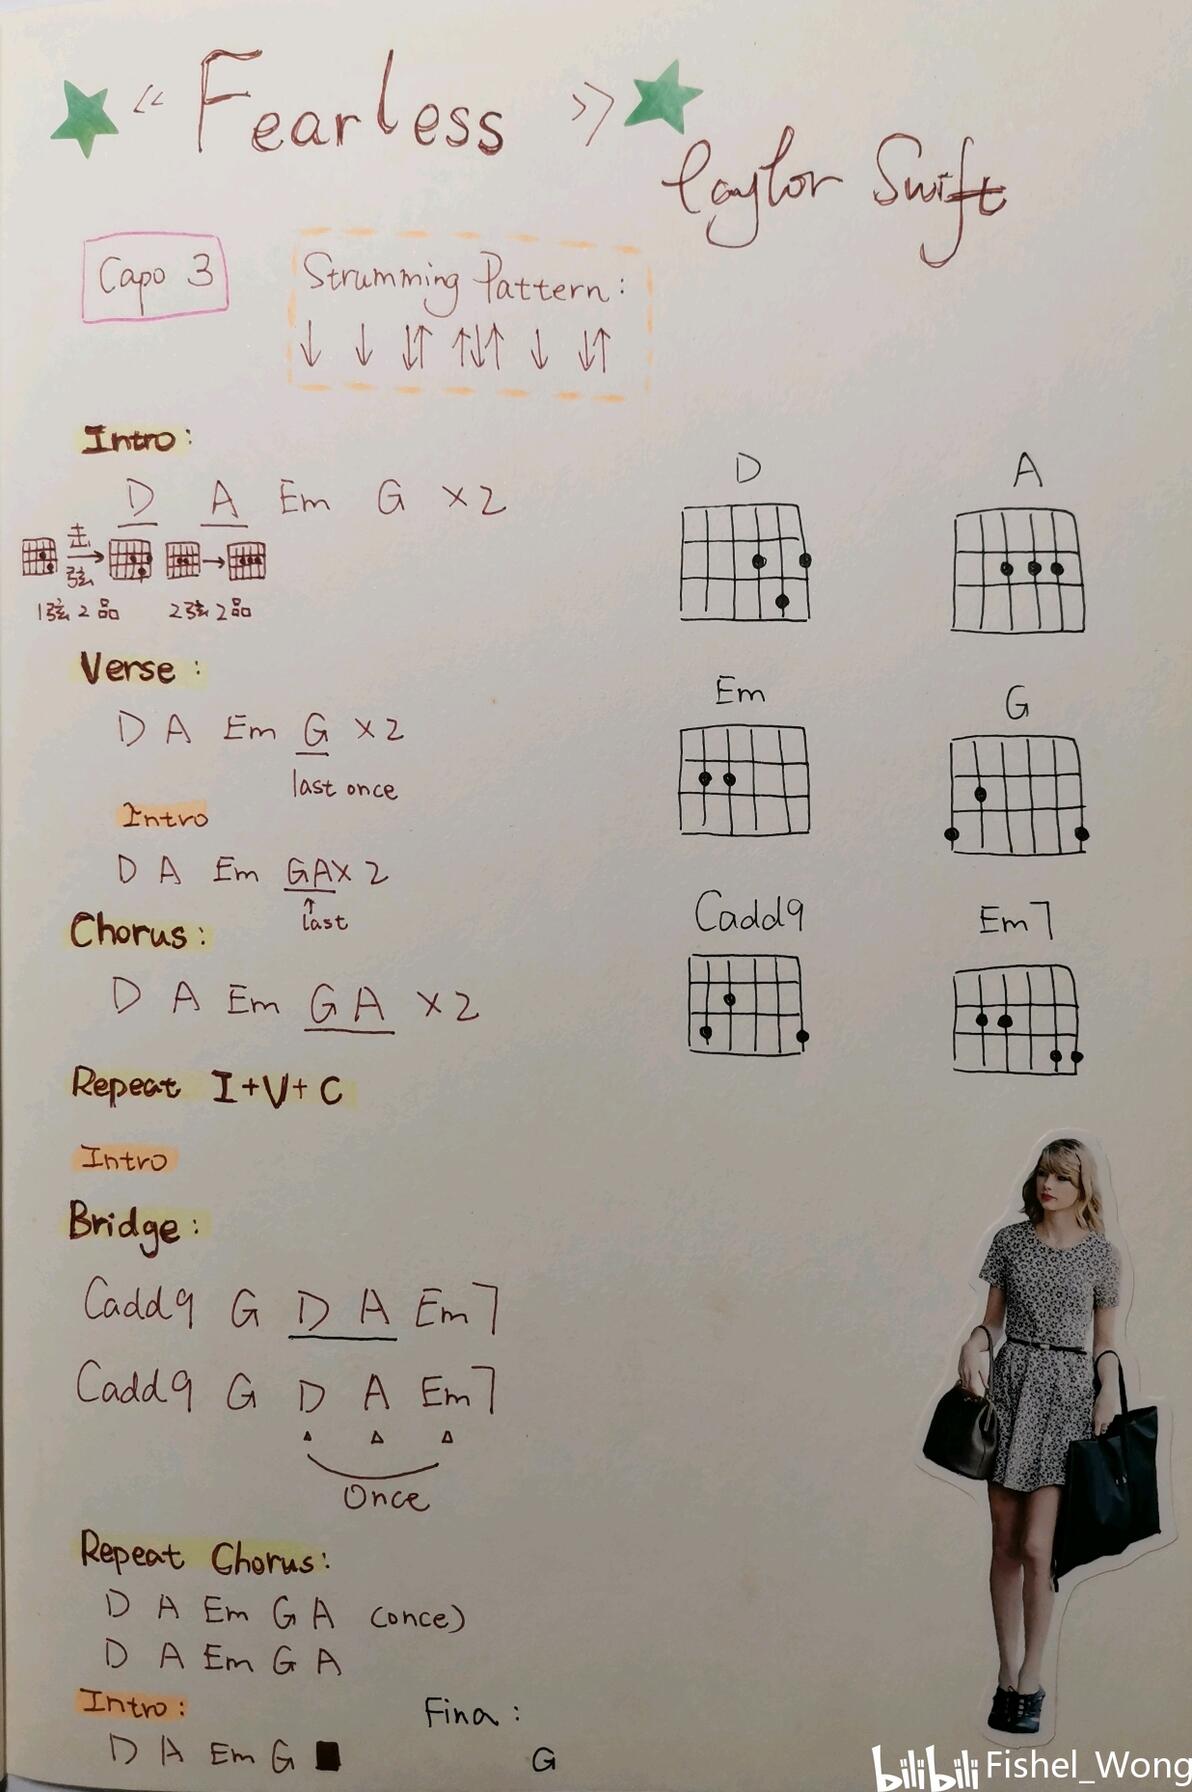 《 Fearless 》
Taylor Swift
Capo 3
Strumming Pattern:
↓ ↓ ↓↑ ↑↓↑ ↓ ↓↑
Intro:
D A Em G ×2
击
弦
1弦2品 2弦2品
Verse:
D A Em G ×2
last once
Intro
D A Em GA×2
↑
last
Chorus:
D A Em G A ×2
Repeat I+V+C
Intro
Bridge:
Cadd9 G D A Em7
Cadd9 G D A Em7
Once
Repeat Chorus:
D A Em G A (once)
D A Em G A
Intro:
D A Em G
Fina:
G
D
A
Em
G
Cadd9
Em7
bilibili Fishel_Wong